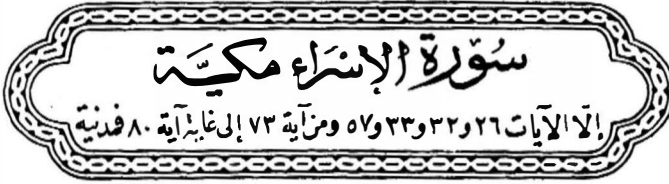 سُوْرَة الإسْرَاء مكيَّة
إلّا الآيات ٢٦ و٣٢ و٣٣ و٥٧ ومن آية ٧٣ إلى غاية آية ٨٠ فمدنية